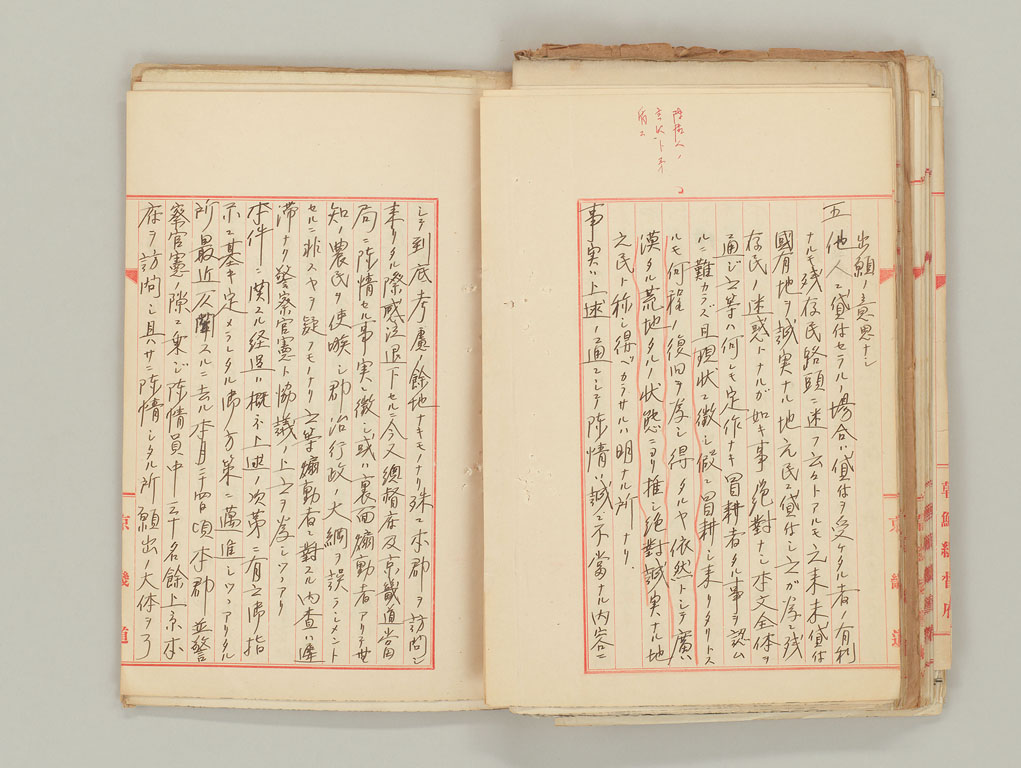 出願ノ意思ナシ
五 他人ニ貸付セラルヽ場合、貸付ヲ受ケタル者ノ有利
ナルモ残存民路頭ニ迷フ云々トアルモ之未未貸付
國有地ヲ誠実ナル地元民ニ貸付シ之ガ為メ残
存民ノ迷惑トナルガ如キ事絶對ナシ本文全体ヲ
通ジ之等ハ何レモ定作ナキ冒耕者タル事ヲ認ム
ルニ難カラズ且現状ニ徴シ假ニ冒耕シ来リタリトス
ルモ何程ノ復旧ヲ為シ得タルヤ依然トシテ廣
漠タル荒地タルノ状態ニヨリ推シ絶對誠実ナル地
元民ト称シ得ベカラサルハ明ナル所ナリ
事実ハ上述ノ通ニシテ陳情ハ誠ニ不當ナル内容ニ
シテ到底考慮ノ餘地ナキモノナリ殊ニ本郡ヲ訪問シ
来リタル際感泣退下セルニ今又總督府及京畿道當
局ニ陳情セル事実ニ徴シ或ハ裏面煽動者アリテ無
知ノ農民ヲ使嗾シ郡治行政ノ大綱ヲ誤ラシメント
セルニ非スヤヲ疑フモノナリ之等煽動者ニ對スル内査ハ遅
滞ナリ警察官憲ト協議ノ上之ヲ為シツヽアリ
本件ニ関スル経過ハ概ネ上述ノ次第ニ有之御指
示ニ基キ定メラレタル御方策ニ邁進シツヽアリタル
所最近仄聞スルニ去ル本月二十四日頃本郡並警
察官憲ノ隙ニ乗ジ陳情員中三十名餘上京本
府ヲ訪問シ具ハサニ陳情シタル所願出ノ大体ヲ了
京畿道
朝鮮總督府
京畿道